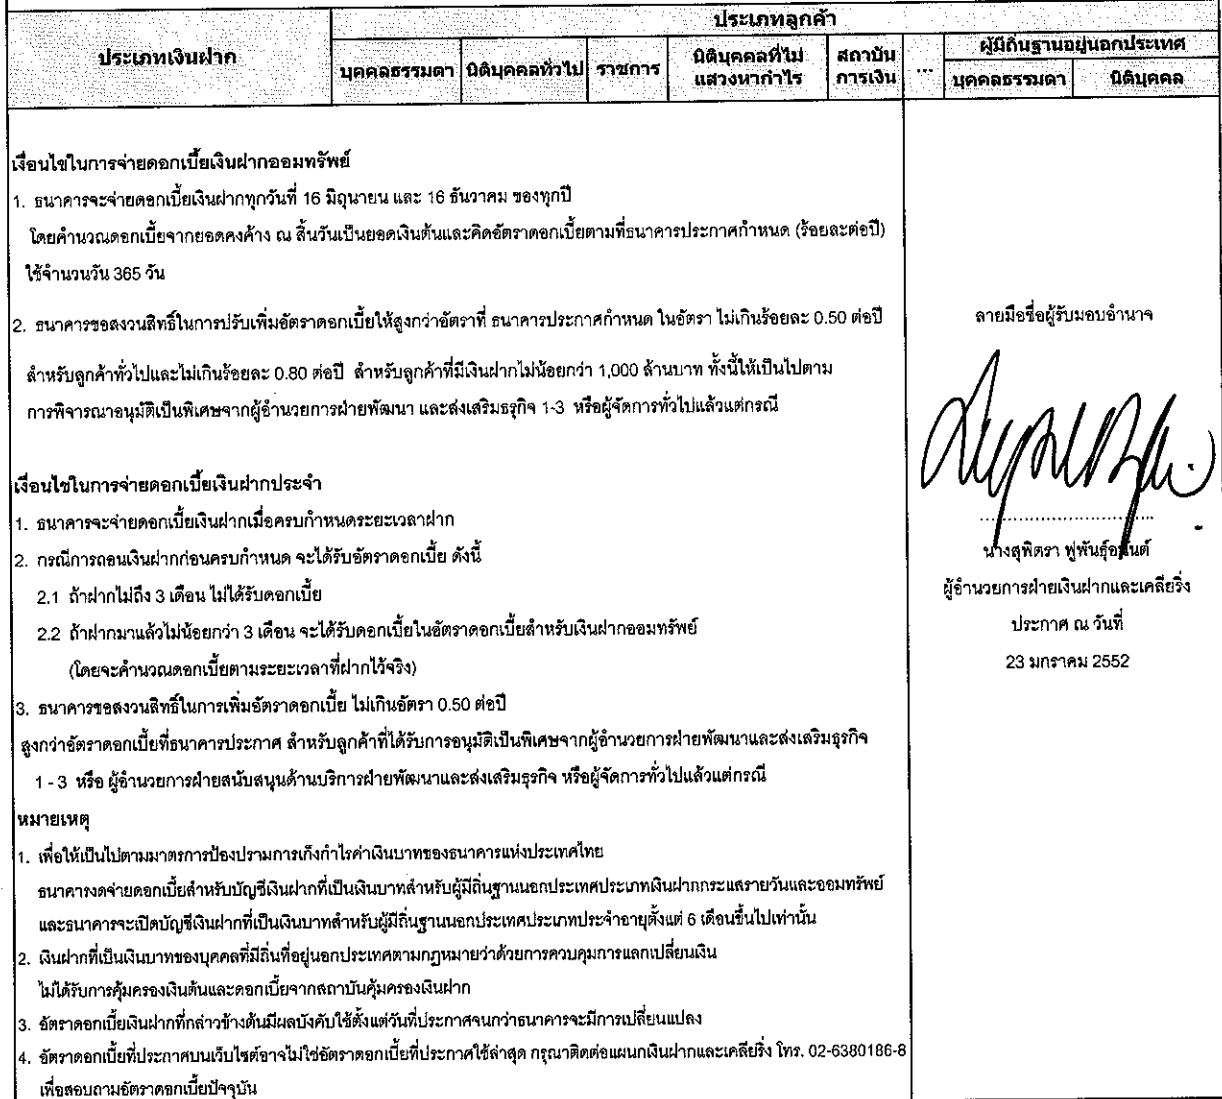 ประเภทลูกค้า
ประเภทเงินฝาก
บุคคลธรรมดา นิติบุคคลทั่วไป ราชการ นิติบุคคลที่ไม่แสวงหากำไร สถาบันการเงิน ... ผู้มีถิ่นฐานอยู่นอกประเทศ
บุคคลธรรมดา นิติบุคคล
เงื่อนไขในการจ่ายดอกเบี้ยเงินฝากออมทรัพย์
1. ธนาคารจะจ่ายดอกเบี้ยเงินฝากทุกวันที่ 16 มิถุนายน และ 16 ธันวาคม ของทุกปี
โดยคำนวณดอกเบี้ยจากยอดคงค้าง ณ สิ้นวันเป็นยอดเงินต้นและคิดอัตราดอกเบี้ยตามที่ธนาคารประกาศกำหนด (ร้อยละต่อปี)
ใช้จำนวนวัน 365 วัน
2. ธนาคารขอสงวนสิทธิ์ในการปรับเพิ่มอัตราดอกเบี้ยให้สูงกว่าอัตราที่ ธนาคารประกาศกำหนด ในอัตรา ไม่เกินร้อยละ 0.50 ต่อปี
สำหรับลูกค้าทั่วไปและไม่เกินร้อยละ 0.80 ต่อปี สำหรับลูกค้าที่มีเงินฝากไม่น้อยกว่า 1,000 ล้านบาท ทั้งนี้ให้เป็นไปตาม
การพิจารณาอนุมัติเป็นพิเศษจากผู้อำนวยการฝ่ายพัฒนา และส่งเสริมธุรกิจ 1-3 หรือผู้จัดการทั่วไปแล้วแต่กรณี
เงื่อนไขในการจ่ายดอกเบี้ยเงินฝากประจำ
1. ธนาคารจะจ่ายดอกเบี้ยเงินฝากเมื่อครบกำหนดระยะเวลาฝาก
2. กรณีการถอนเงินฝากก่อนครบกำหนด จะได้รับอัตราดอกเบี้ย ดังนี้
2.1 ถ้าฝากไม่ถึง 3 เดือน ไม่ได้รับดอกเบี้ย
2.2 ถ้าฝากมาแล้วไม่น้อยกว่า 3 เดือน จะได้รับดอกเบี้ยในอัตราดอกเบี้ยสำหรับเงินฝากออมทรัพย์
(โดยจะคำนวณดอกเบี้ยตามระยะเวลาที่ฝากไว้จริง)
3. ธนาคารขอสงวนสิทธิ์ในการเพิ่มอัตราดอกเบี้ย ไม่เกินอัตรา 0.50 ต่อปี
สูงกว่าอัตราดอกเบี้ยที่ธนาคารประกาศ สำหรับลูกค้าที่ได้รับการอนุมัติเป็นพิเศษจากผู้อำนวยการฝ่ายพัฒนาและส่งเสริมธุรกิจ
1 - 3 หรือ ผู้อำนวยการฝ่ายสนับสนุนด้านบริการฝ่ายพัฒนาและส่งเสริมธุรกิจ หรือผู้จัดการทั่วไปแล้วแต่กรณี
หมายเหตุ
1. เพื่อให้เป็นไปตามมาตรการป้องปรามการเก็งกำไรค่าเงินบาทของธนาคารแห่งประเทศไทย
ธนาคารงดจ่ายดอกเบี้ยสำหรับบัญชีเงินฝากที่เป็นเงินบาทสำหรับผู้มีถิ่นฐานนอกประเทศประเภทเงินฝากกระแสรายวันและออมทรัพย์
และธนาคารจะเปิดบัญชีเงินฝากที่เป็นเงินบาทสำหรับผู้มีถิ่นฐานนอกประเทศประเภทประจำอายุตั้งแต่ 6 เดือนขึ้นไปเท่านั้น
2. เงินฝากที่เป็นเงินบาทของบุคคลที่มีถิ่นที่อยู่นอกประเทศตามกฎหมายว่าด้วยการควบคุมการแลกเปลี่ยนเงิน
ไม่ได้รับการคุ้มครองเงินต้นและดอกเบี้ยจากสถาบันคุ้มครองเงินฝาก
3. อัตราดอกเบี้ยเงินฝากที่กล่าวข้างต้นมีผลบังคับใช้ตั้งแต่วันที่ประกาศจนกว่าธนาคารจะมีการเปลี่ยนแปลง
4. อัตราดอกเบี้ยที่ประกาศบนเว็บไซต์อาจไม่ใช่อัตราดอกเบี้ยที่ประกาศใช้ล่าสุด กรุณาติดต่อแผนกเงินฝากและเคลียริ่ง โทร. 02-6380186-8
เพื่อสอบถามอัตราดอกเบี้ยปัจจุบัน
ลายมือชื่อผู้รับมอบอำนาจ
นางสุพิตรา ฟูพันธุ์อนันต์
ผู้อำนวยการฝ่ายเงินฝากและเคลียริ่ง
ประกาศ ณ วันที่
23 มกราคม 2552